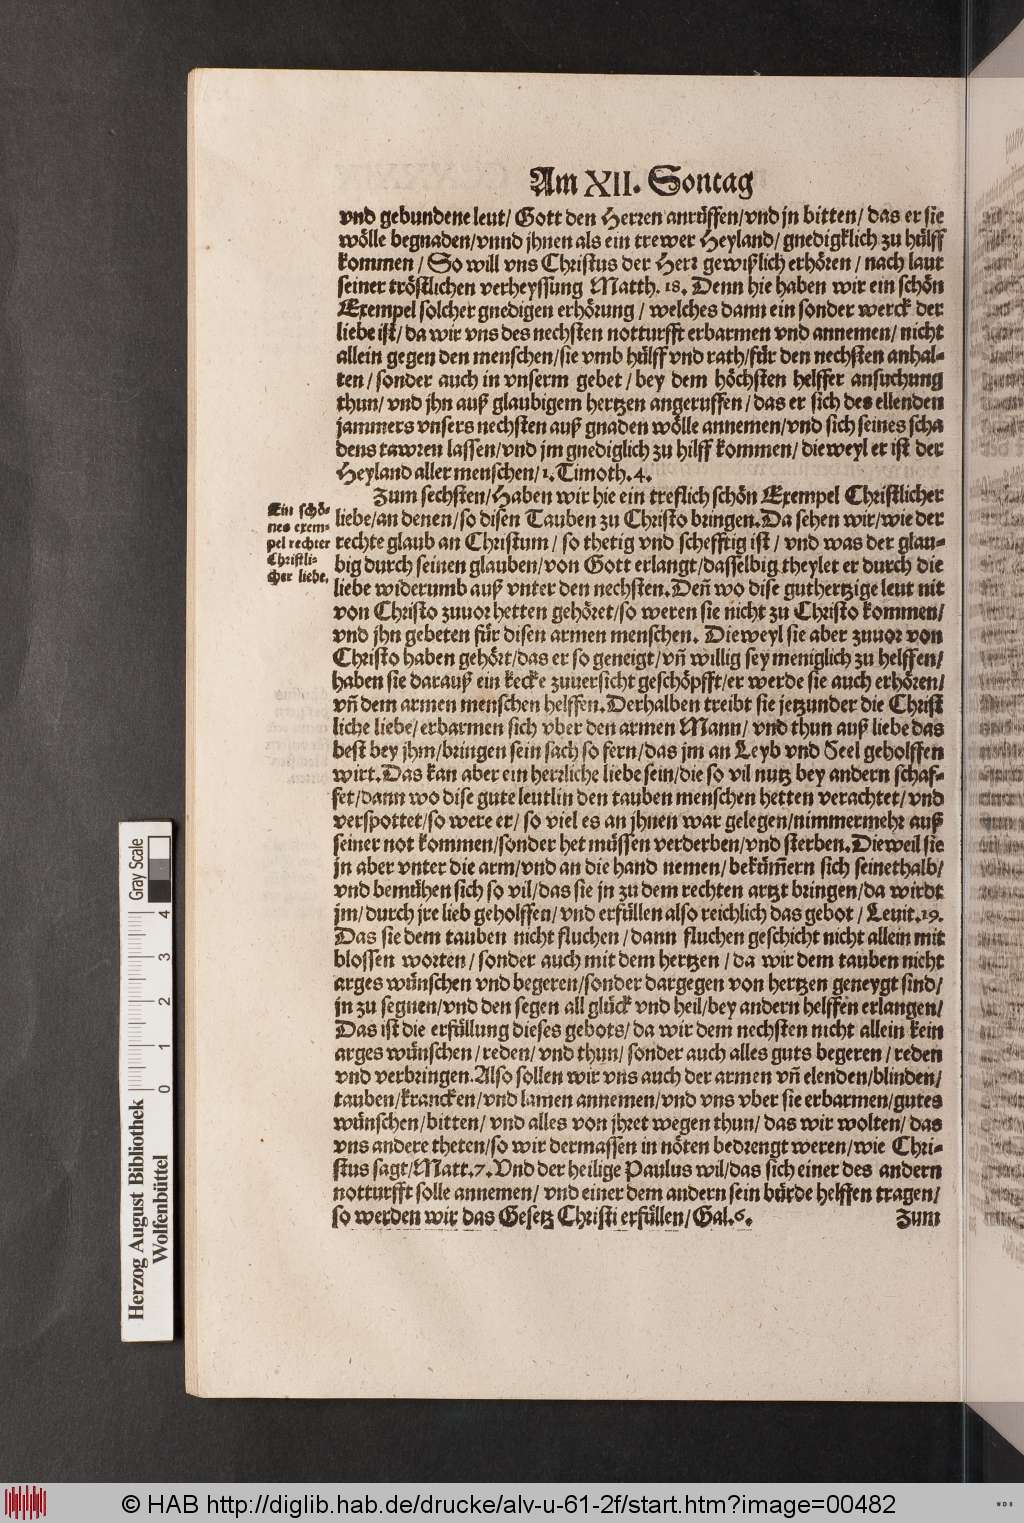 Am XII. Sontag
vnd gebundene leut/ Gott den Herren anrüffen/vnd jn bitten/ das er sie
wölle begnaden/vnnd jhnen als ein trewer Heyland/ gnedigklich zu hülff
kommen / So will vns Christus der Herr gewißlich erhören / nach laut
seiner tröstlichen verheyssung Matth. 18. Denn hie haben wir ein schön
Exempel solcher gnedigen erhörung / welches dann ein sonder werck der
liebe ist/ da wir vns des nechsten notturfft erbarmen vnd annemen/ nicht
allein gegen den menschen/sie vmb hülff vnd rath/für den nechsten anhal-
ten / sonder auch in vnserm gebet / bey dem höchsten helffer ansuchung
thun/ vnd jhn auß glaubigem hertzen angeruffen / das er sich des ellenden
jammers vnsers nechsten auß gnaden wölle annemen/vnd sich seines scha
dens tawren lassen/vnd jm gnediglich zu hilff kommen/ dieweyl er ist der
Heyland aller menschen/ 1. Timoth. 4.
Zum sechsten/ Haben wir hie ein treflich schön Exempel Christlicher
liebe/an denen/ so disen Tauben zu Christo bringen. Da sehen wir/wie der
rechte glaub an Christum / so thetig vnd schefftig ist / vnd was der glau-
big durch seinen glauben/von Gott erlangt/dasselbig theylet er durch die
liebe widerumb auß vnter den nechsten. Deñ wo dise guthertzige leut nit
von Christo zuuor hetten gehöret/so weren sie nicht zu Christo kommen/
vnd jhn gebeten für disen armen menschen. Dieweyl sie aber zuuor von
Christo haben gehört/das er so geneigt/vñ willig sey meniglich zu helffen/
haben sie darauß ein kecke zuuersicht geschöpfft/er werde sie auch erhören/
vñ dem armen menschen helffen. Derhalben treibt sie jetzunder die Christ
liche liebe/ erbarmen sich vber den armen Mann/ vnd thun auß liebe das
best bey jhm/bringen sein sach so fern/das jm an Leyb vnd Seel geholffen
wirt. Das kan aber ein herrliche liebe sein/die so vil nutz bey andern schaf-
fet/dann wo dise gute leutlin den tauben menschen hetten verachtet/ vnd
verspottet/so were er/ so viel es an jhnen war gelegen/nimmermehr auß
seiner not kommen/sonder het müssen verderben/vnd sterben. Dieweil sie
jn aber vnter die arm/vnd an die hand nemen/ bekü̃mern sich seinethalb/
vnd bemühen sich so vil/das sie jn zu dem rechten artzt bringen/da wirdt
jm/durch jre lieb geholffen/ vnd erfüllen also reichlich das gebot / Leuit. 19.
Das sie dem tauben nicht fluchen / dann fluchen geschicht nicht allein mit
blossen worten / sonder auch mit dem hertzen / da wir dem tauben nicht
arges wünschen vnd begeren/sonder dargegen von hertzen geneygt sind/
jn zu segnen/vnd den segen all glück vnd heil/bey andern helffen erlangen/
Das ist die erfüllung dieses gebots/ da wir dem nechsten nicht allein kein
arges wünschen / reden/ vnd thun/ sonder auch alles guts begeren / reden
vnd verbringen. Also sollen wir vns auch der armen vñ elenden/blinden/
tauben/krancken/vnd lamen annemen/vnd vns vber sie erbarmen/gutes
wünschen/bitten/ vnd alles von jhret wegen thun/ das wir wolten/ das
vns andere theten/so wir dermassen in nöten bedrengt weren/wie Chri-
stus sagt/Matt. 7. Vnd der heilige Paulus wil/das sich einer des andern
notturfft solle annemen/ vnd einer dem andern sein bürde helffen tragen/
so werden wir das Gesetz Christi erfüllen/ Gal. 6.
Zum
Ein schö-
nes exem-
pel rechter
Christli-
cher liebe.
Gray Scale
0 1 2 3 4
Herzog August Bibliothek
Wolfenbüttel
© HAB http://diglib.hab.de/drucke/alv-u-61-2f/start.htm?image=00482